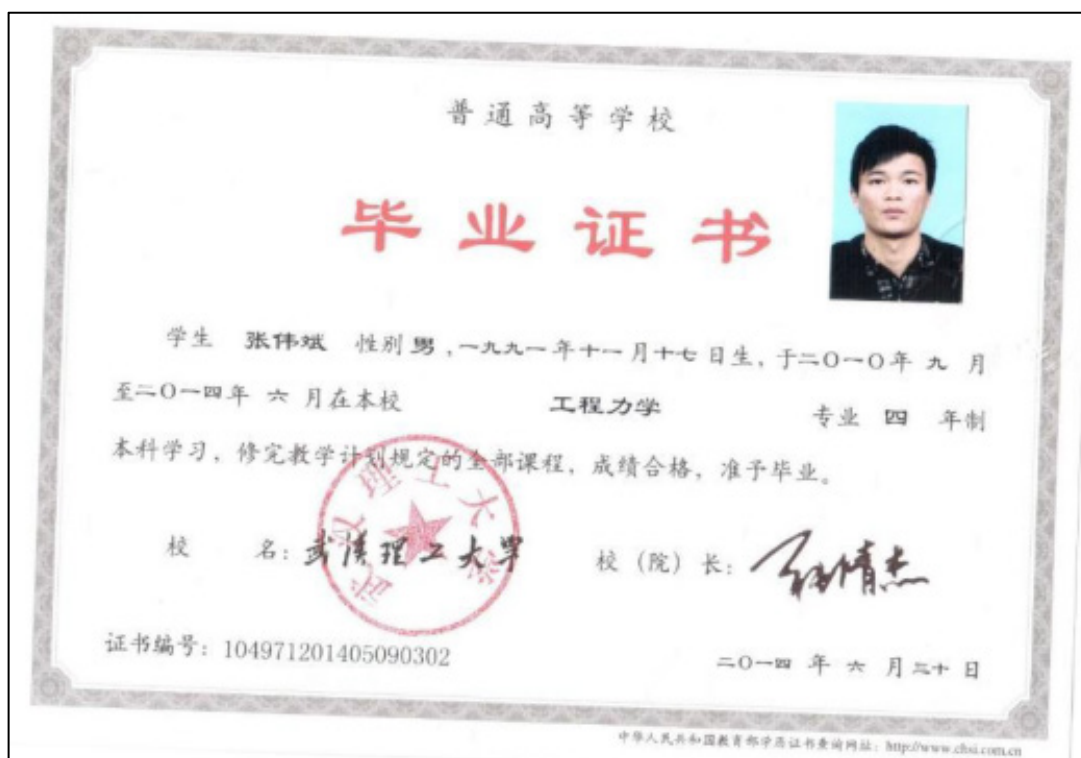 普通高等学校
毕业证书
学生 张伟斌 性别 男，一九九一年十一月十七日生，于二〇一〇年 九 月
至二〇一四年 六 月在本校 工程力学 专业 四 年制
本科学习，修完教学计划规定的全部课程，成绩合格，准予毕业。
校 名：武汉理工大学 校（院）长：
武汉理工大学
证书编号：104971201405090302 二〇一四 年 六 月三十 日
中华人民共和国教育部学历证书查询网址：http://www.chsi.com.cn